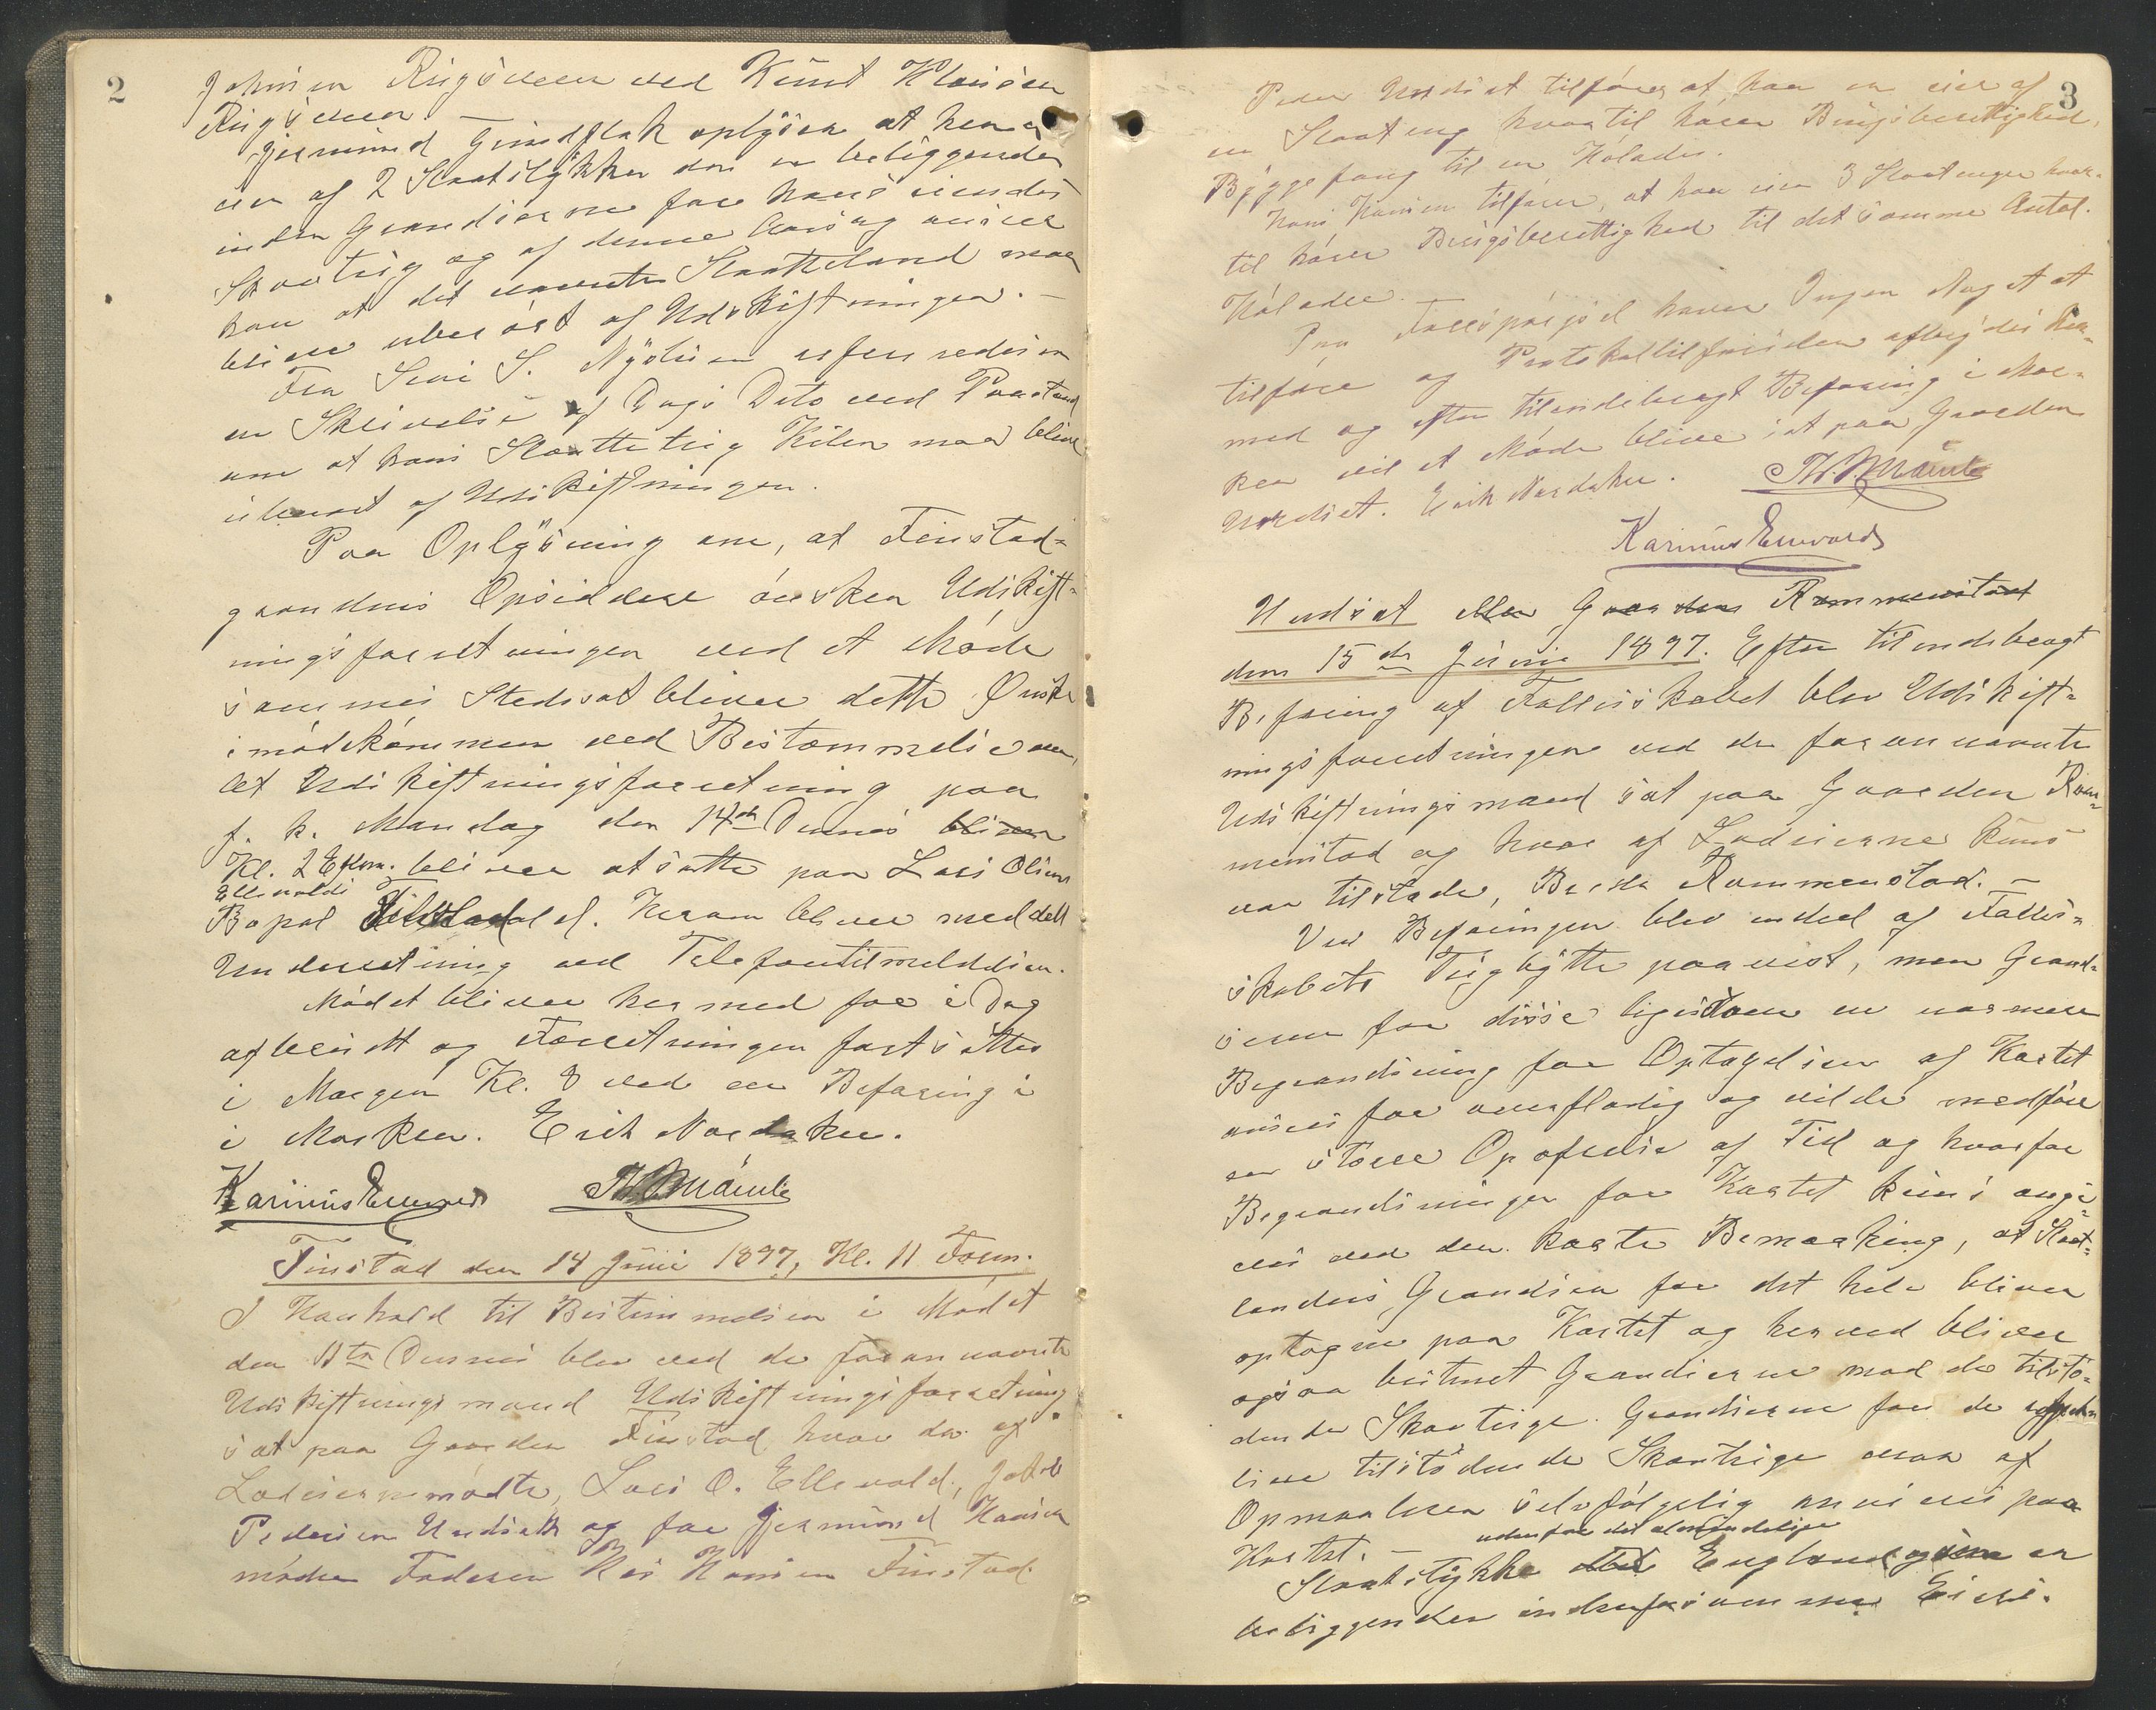 2
Johnsen Ringsveen ved Knut Klausen
Ringsveen —
Gjermund Grindflek oplyser at han er
eier af 2 Slaatstykker der er beliggende
inden Grændserne for hans eiendes
Skovteig og af denne Aarsag anser
han at det nævnte Slaatteland maa
blive uberørt af Udskiftningen. —
Fra Simi S. Nysturen refereredes
en Skrivelse af Dags Dato med Paastand
om at hans Slaatteteig Kilen maa blive
uberørt af Udskiftningen.
Paa Oplysning om, at Finstad-
grændens Opsiddere ønsker Udskift-
ningsforretningen ved et Møde
sammes Stedsat bliver dette Ønske
imødekommen ved Bestemmelse om,
at Udskiftningsforretning paa
f. k. Mandag den 14de Dennes bliver
Kl. 2 Efterm. bliver at sætte paa Lars Olsens
Ellevolds
Bopæl Herom bliver meddelt
Underretning ved Telefontilmeldelsen.
Mødet bliver hermed for i Dag
afbrudt og Forretningen fortsættes
i Morgen Kl. 8 ved en Befaring i
i Marken. Erik Nordaker.
Karinius Ellevold
Finstad den 14 Juni 1897, Kl. 11 Form.
I Henhold til Bestemmelsen i Mødet
den 11te Dennes blev ved de foran nævnte
Udskiftningsmænd Udskiftningsforretning
sat paa Gaarden Finstad hvor da af
Lodeierne mødte, Lars O. Ellevold, Jakob
Pedersen Undset og for Gjermund Hansen
møder Faderen Hans Hansen Finstad.
3
Peder Undset tilfører at han er eier af
en Slaatteng hvortil hører Brugsberettighed,
Byggefang til en Hølade.
Hans Hansen tilfører, at han eier 3 Slaatenger hvor-
til hører Brugsberettighed til det samme Antal.
Hølader.
Paa Forespørgsel haver Ingen Noget at
tilføre og Protokoltilførselen afbrydes her-
med og efter tilendebragt Befaring i Mar-
ken vil et Møde blive sat paa Gaarden
Undset. Erik Nordaker.
Karinius Ellevold
Undset eller Gaarden Rommenstad
den 15de Junie 1897. Efter tilendebragt
Befaring af Fællesskabet blev Udskift-
ningsforretningen ved de forannævnte
Udskiftningsmænd sat paa Gaarden Rom-
menstad og hvor af Lodeierne kuns
var tilstede, Berte Rommenstad. —
Ved Befaringen blev endel af Fælles-
skabets Teigbytte paavist, men Grænd-
serne for disse ligesom en nærmere
Begrændsning for Optagelsen af Kartet
ansees for overflødig og vilde medføre
en større Opofrelse af Tid og hvorfor
Begrændsninger for Kartet kuns angi-
ves ved den korte Bemærkning, at Slaat-
landets Grændser for det hele bliver
optagne paa Kartet og herved bliver
ogsaa bestemt Grændserne mod de tilstø-
dende Skovteige. Grændserne for de
tilstødende Skovteige maa af
Opmaaleren selvfølgelig anvises paa
Kartet. —
udenfor det almindelige
Slaatstykke det England er
beliggende indenfor samme Eien-